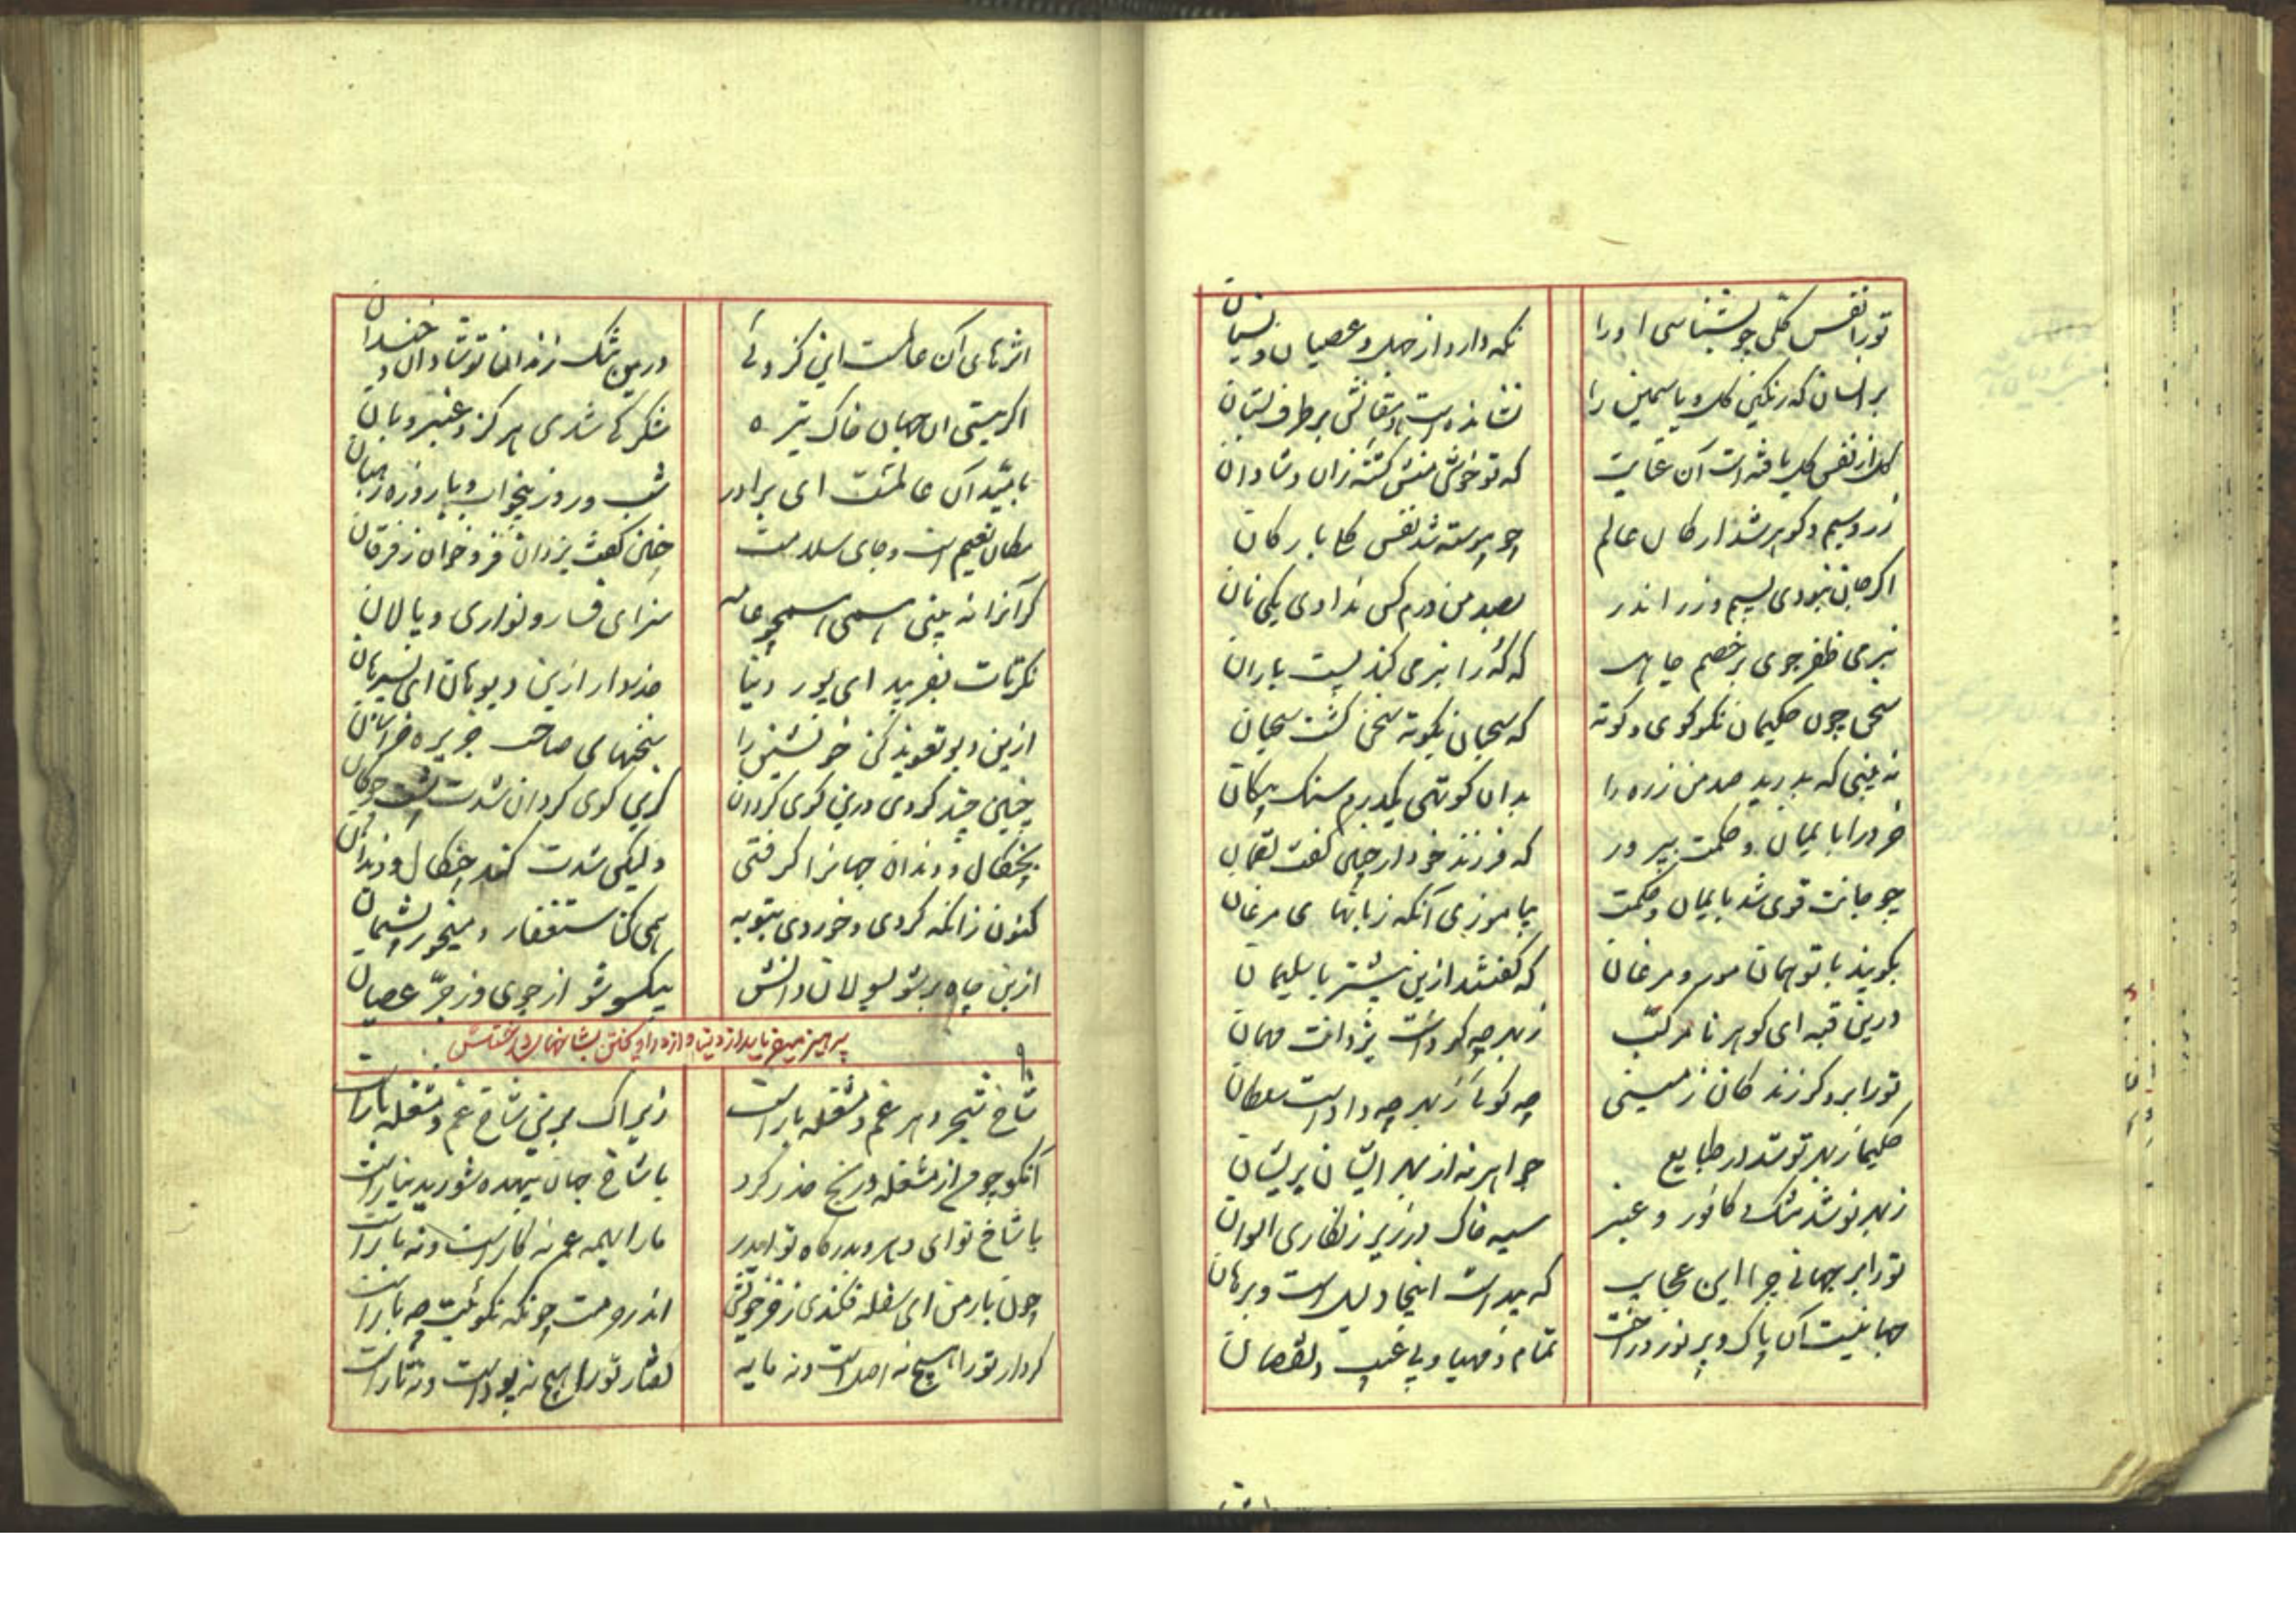 تورا نفس کلی چو بشناسی اورا
نکه دارد از جهل و عصیان و نسیان
بر انسان که رنکین کل و یاسمین را
نشانده است دهقانش بر طرف بستان
کل از نفس کل یافته است آن عنایت
که تو خوش منش کشتهٔ زان و شادان
زر و سیم و کوهر شد ارکان عالم
چو پیوسته شد نفس کل با ارکان
اکر جان نبودی بسیم و زر اندر
بصد من درم کس ندادی یکی نان
بنرمی ظفر جوی بر خصم جاهل
که که را بنرمی کند پست باران
سخن چون حکیمان نکو کوی و کوته
که سحبان بکوته سخن کشت سحبان
نه بینی که بدرید صد من زره را
بدان کوتهی یکدرم سنک پیکان
خرد را بایمان و حکمت بپرور
که فرزند خود را چنین کفت لقمان
چو جانت قوی شد بایمان و حکمت
بیاموزی آنکه زبانهای مرغان
بکویند با تو همان مور و مرغان
که کفتند ازین پیشتر با سلیمان
درین قبه ای کوهر نامرکب
زبهر چه کرد است یزدانت مهمان
تورا بر دکر زندکان زمینی
چه کوئی زبهر چه داد است سلطان
حکیما زبهر تو شد در طبایع
جواهر نه از بهر ایشان پریشان
زبهر تو شد مشک و کافور و عنبر
سیه خاک در زیر زنکاری الوان
تورا بر جهانی جز این عجایب
که پیداست اینجا دلیل است و برهان
جهانیست آن پاک و پر نور و راحت
تمام و مهیا و بی عیب و نقصان
اثرهای آن عالمست این کزو تو
درین تنک زندان تو شادان و خندان
اکر نیستی آن جهان خاک تیره
شکر کی شدی هرکز و عنبر و بان
بامید آن عالمست ای برادر
شب و روز بیخواب و با روزه رهبان
مکان نعیم است و جای سلامت
چنین کفت یزدان فرو خوان ز فرقان
کر آنرا نه بینی همی همچو عامه
سزای فسار و نواری و پالان
نکر تات نفریبد ای پور دنیا
حذر دار ازین دیو هان ای پسر هان
ازین دیو تعویذ کن خویشتن را
سخنهای صاحب جزیره خراسان
چنین چند کردی درین کوی کردان
کزین کوی کردان شدت پشت چوکان
بچنکال و دندان جهانرا کرفتی
ولیکن شدت کند چنکال و دندان
کنون زانکه کردی و خوردی بتوبه
همی کن استغفار و میخور پشیمان
ازین چاه بر شو بسولان دانش
بیکسو شو از جوی وز جرّ عصیان
پرهیز میفرماید از دنیا و
شاخ شجر دهر غم و مشغله بار است
زیراک برین شاخ غم و مشغله بار است
آنکو چو من از مشغله و رنج حذر کرد
با شاخ جهان بیهده شورید نیارست
با شاخ تو ای دهر و بدرکاه تو اندر
مارا همه عمر نه کار است و نه بار است
چون بار من ای سفله فکندی ز خر خویش
اندر خر من چونکه نکوئیت چه بار است
کردار تورا هیچ نه اصل است و نه مایه
کفتار تورا هیچ نه پود است و نه تار است